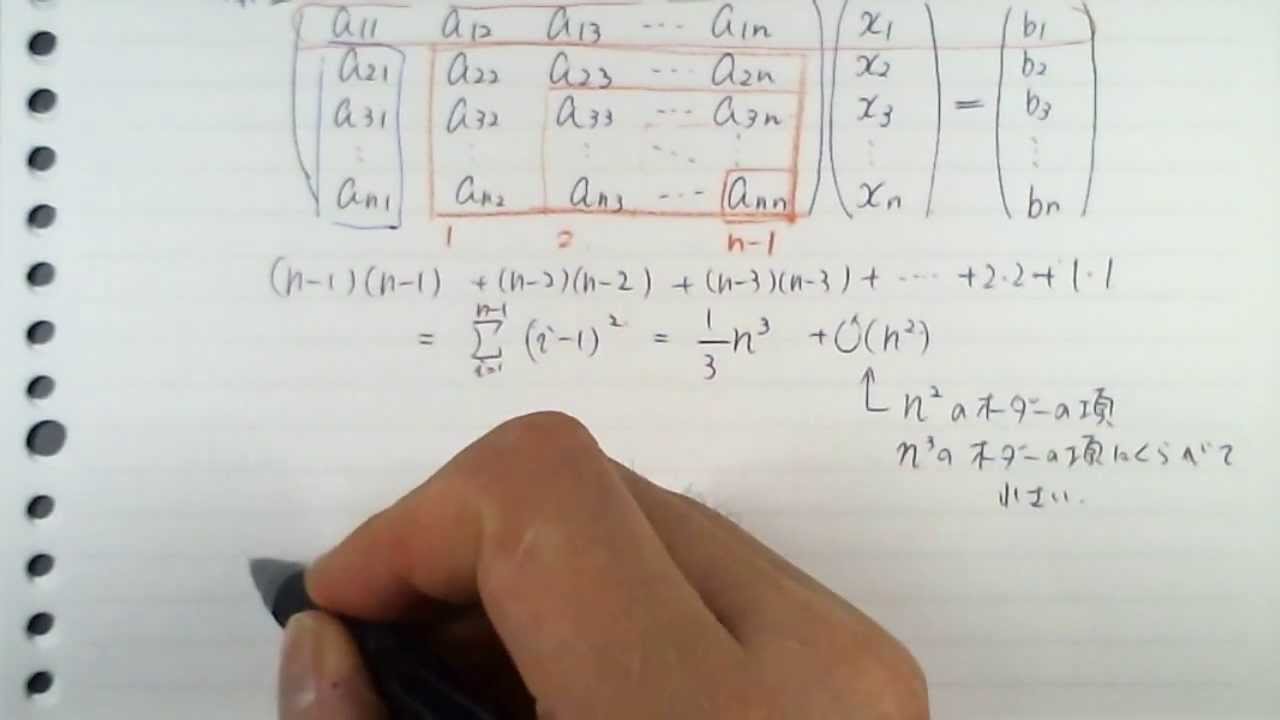 a11 a12 a13 ... a1n x1 b1
a21 a22 a23 ... a2n x2 b2
a31 a32 a33 ... a3n x3 = b3
⋮ ⋮ ⋮ ⋱ ⋮ ⋮ ⋮
an1 an2 an3 ... ann xn bn
1 2 n-1
(n-1)(n-1) +(n-2)(n-2) +(n-3)(n-3)+ ... +2·2+1·1
= Σ_{i=1}^{n-1} (i-1)² = 1/3 n³ + O(n²)
↑ n²のオーダーの項
n³のオーダーの項にくらべて
小さい.